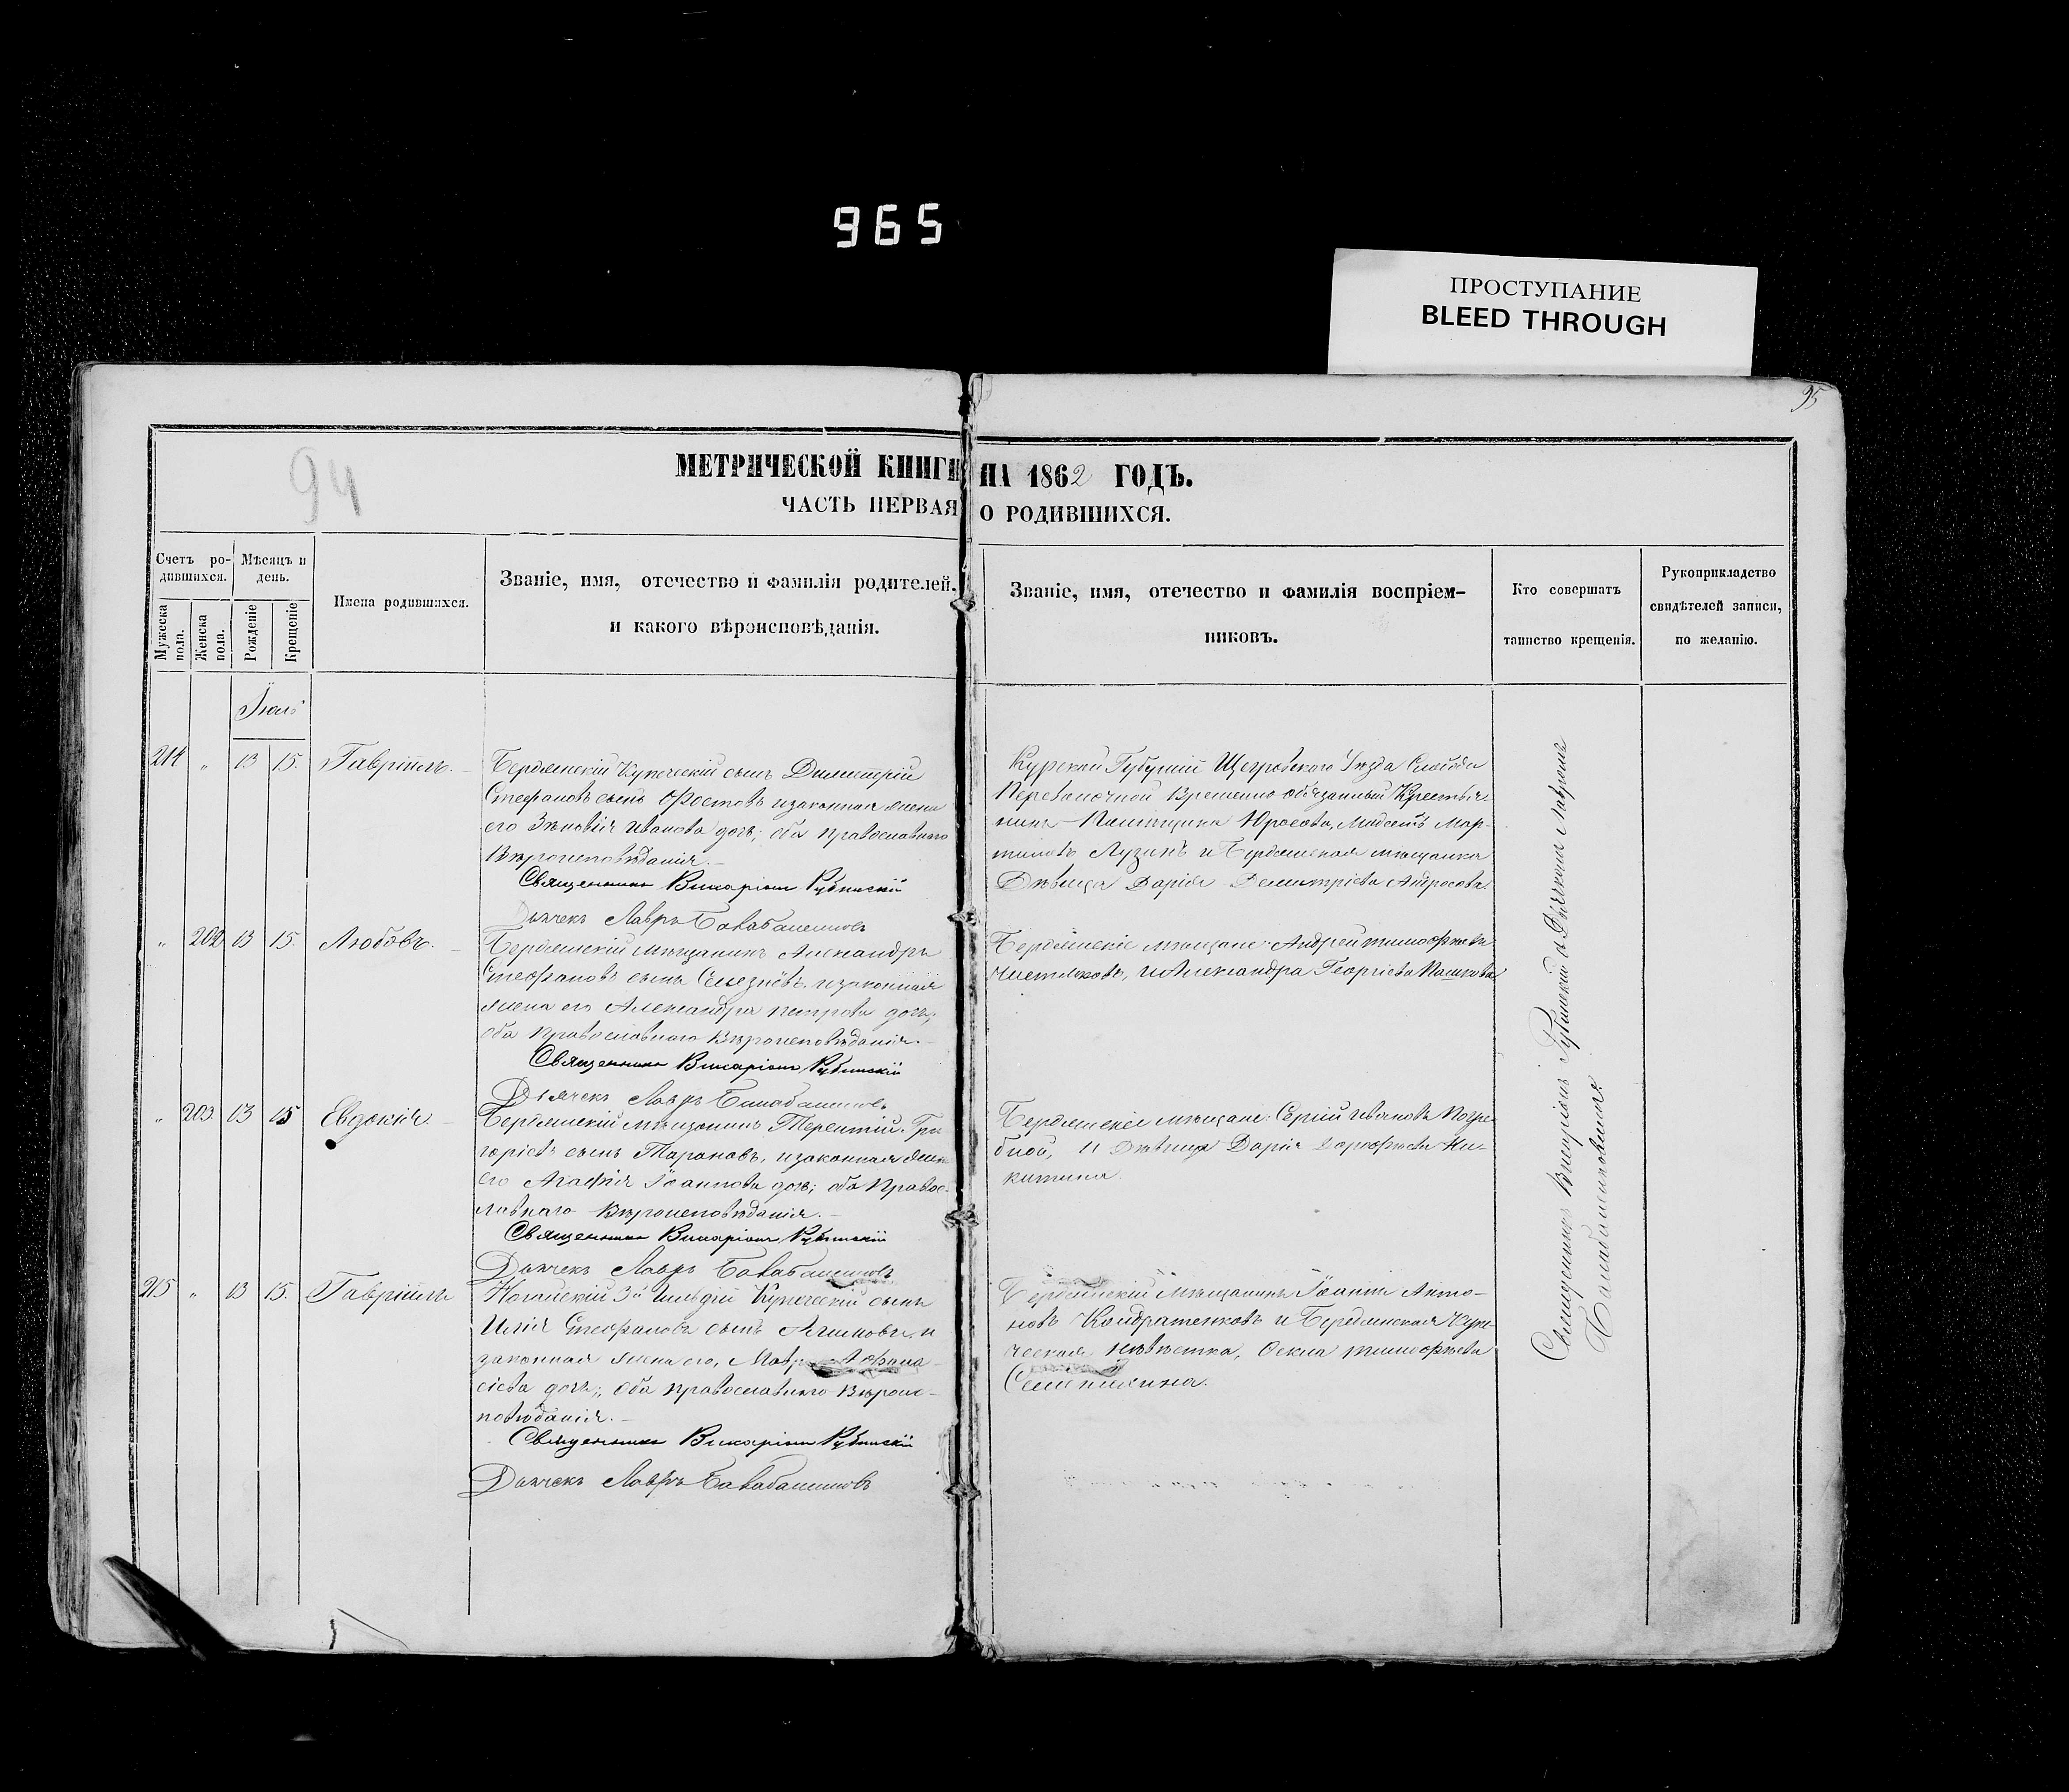 965
ПРОСТУПАНИЕ
BLEED THROUGH
95
94
МЕТРИЧЕСКОЙ КНИГИ НА 1862 ГОДЪ.
ЧАСТЬ ПЕРВАЯ О РОДИВШИХСЯ.
Счетъ ро-
дившихся.
Мѣсяцъ и
день.
Мужеска
пола.
Женска
пола.
Рожденіе
Крещеніе
Имена родившихся.
Званіе, имя, отечество и фамилія родителей,
и какого вѣроисповѣданія.
Званіе, имя, отечество и фамилія воспріем-
никовъ.
Кто совершатъ
таинство крещенія.
Рукоприкладство
свидѣтелей записи,
по желанію.
Іюль
214 " 13 15. Гавріилъ.
Бердянскій Купеческій сынъ Димитрій
Стефановъ сынъ Фостовъ и законная жена
его Зѣновія Иванова дочь; оба православнаго
Вѣроисповѣданія.
Священникъ Викаріонъ Рубинскій
Дьячекъ Лавръ Балабаненковъ
Курской Губерніи Щегровскаго Уѣзда Слободы
Временно-обязанный Крестья-
нинъ Помѣщика Мар-
тиновъ Лузинъ и Бердянская мѣщанка
Дѣвица Дарія Димитріева Андросова.
" 202 13 15. Любовь.
Бердянскій мѣщанинъ Александръ
Стефановъ сынъ Селезнёвъ и законная
жена его Александра Петрова дочь;
оба Православнаго Вѣроисповѣданія.
Священникъ Викаріонъ Рубинскій
Дьячекъ Лавръ Балабаненковъ
Бердянскіе мѣщане: Андрей Тимофѣевъ
Чистяковъ, и Александра Георгіева Пашкова
" 203. 13 15 Евдокія.
Бердянскій мѣщанинъ Терентій Гри-
горіевъ сынъ Тарановъ, и законная жена
его Агафія Іоаннова дочь; оба Правос-
лавнаго Вѣроисповѣданія.
Священникъ Викаріонъ Рубинскій
Дьячекъ Лавръ Балабаненковъ
Бердянскіе мѣщане: Сергій Ивановъ Погре-
бной, и Дѣвица Дарія Дорофѣева Ни-
китина
215 " 13 15. Гавріилъ
Ногайскій 3й Гильдіи Купеческій сынъ
Илія Стефановъ сынъ и
законная жена его, Афана-
сіева дочь; оба православнаго Вѣроис-
повѣданія.
Священникъ Викаріонъ Рубинскій
Дьячекъ Лавръ Балабаненковъ
Бердянскій Мѣщанинъ Іоаннъ Анто-
новъ Кондратенковъ и Бердянская Купе-
ческая невѣстка, Текла Тимофѣева
Священникъ Викаріонъ Рубинскій съ Дьячкомъ Лавромъ
Балабаненковымъ